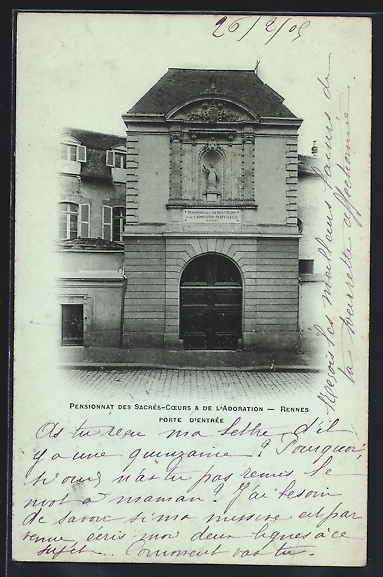 26/2/05
PENSIONNAT DES SACRÉS-CŒURS & DE L'ADORATION — RENNES
PORTE D'ENTRÉE
As tu reçu ma lettre, d'il
y a une quinzaine ? Pourquoi,
si oui, n'as tu pas remis le
mot à maman ? J'ai besoin
de savoir si ma missive est par
venue écris moi deux lignes à ce
sujet. Comment vas tu.
Reçois les meilleurs baisers de
ta affectionnée